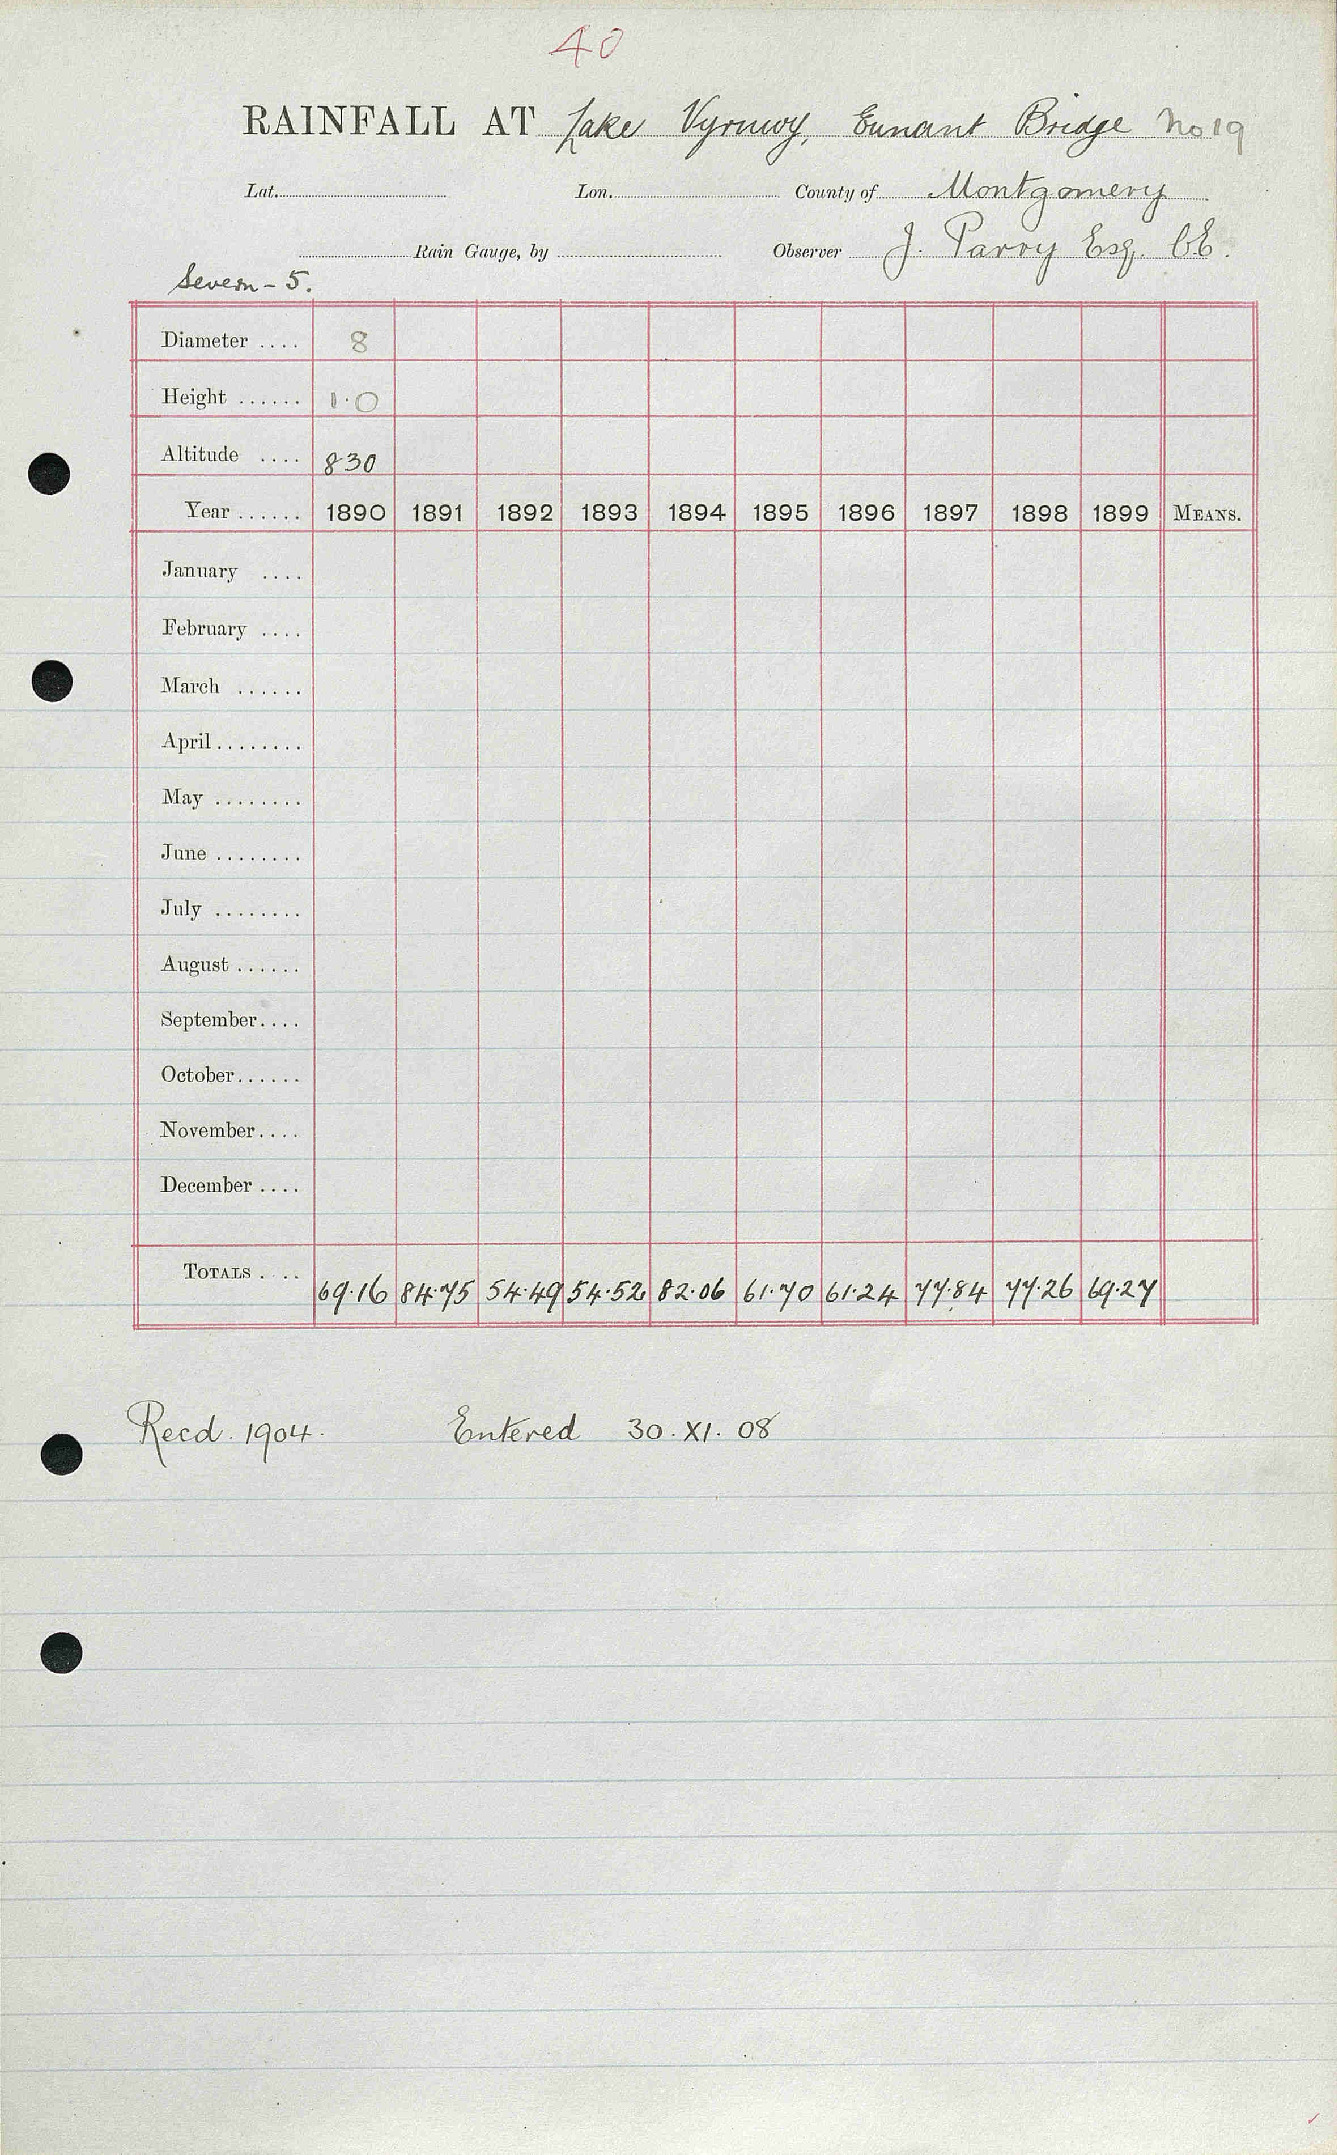 40
RAINFALL AT Lake Vyrnwy, Eunant Bridge No 19
Lat. Lon. County of Montgomery
Rain Gauge, by Observer J. Parry Esq. C.E.
Severn - 5.
Diameter .... 8
Height ...... 1.0
Altitude .... 830
Year ...... 1890 1891 1892 1893 1894 1895 1896 1897 1898 1899 MEANS.
January ....
February ....
March ......
April ........
May ........
June ........
July ........
August ......
September....
October......
November....
December ....
TOTALS .... 69.16 84.75 54.49 54.52 82.06 61.70 61.24 77.84 77.26 69.27
Recd. 1904. Entered 30.XI.08